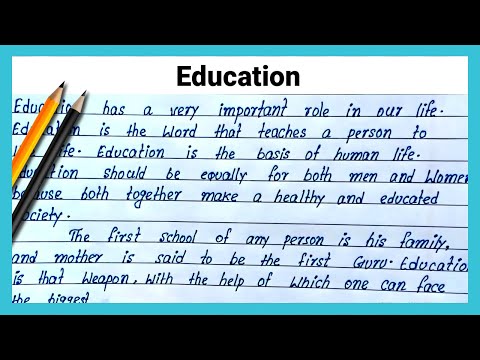 Education
Education has a very important role in our life.
Education is the Word that teaches a person to
life. Education is the basis of human life.
Education should be equally for both men and Women
because both together make a healthy and educated
society.
The first school of any person is his family,
and mother is said to be the first Guru. Education
is that Weapon, With the help of Which one can face
the biggest